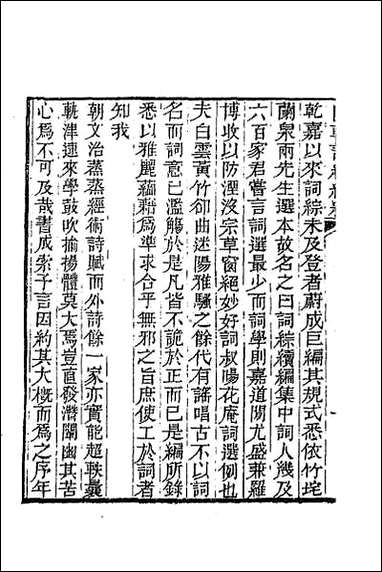 乾嘉以來詞綜未及登者蔚成巨編其規式悉依竹垞
蘭泉兩先生選本故名之曰詞綜續編集中詞人幾及
六百家君嘗言詞選最少而詞學則嘉道間尤盛兼羅
博收以防湮沒宗草窗絕妙好詞叔暘花庵詞選例也
夫白雲黃竹卻曲迷陽雅騷之餘代有諦唱古不以詞
名而詞意已濫觴於是凡皆不詭於正而已是編所錄
悉以雅麗蘊藉爲準求合乎無邪之旨庶使工於詞者
知我
朝文治蒸蒸經術詩賦而外詩餘一家亦實能超軼曩
軌津逮來學鼓吹揄揚體莫大焉豈直發潛闡幽其苦
心爲不可及哉書成索予言因約其大概而爲之序年